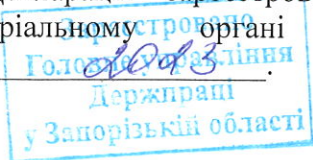 ріальному органі
Зареєстровано
Головне управління
2013
Держпраці
у Запорізькій області